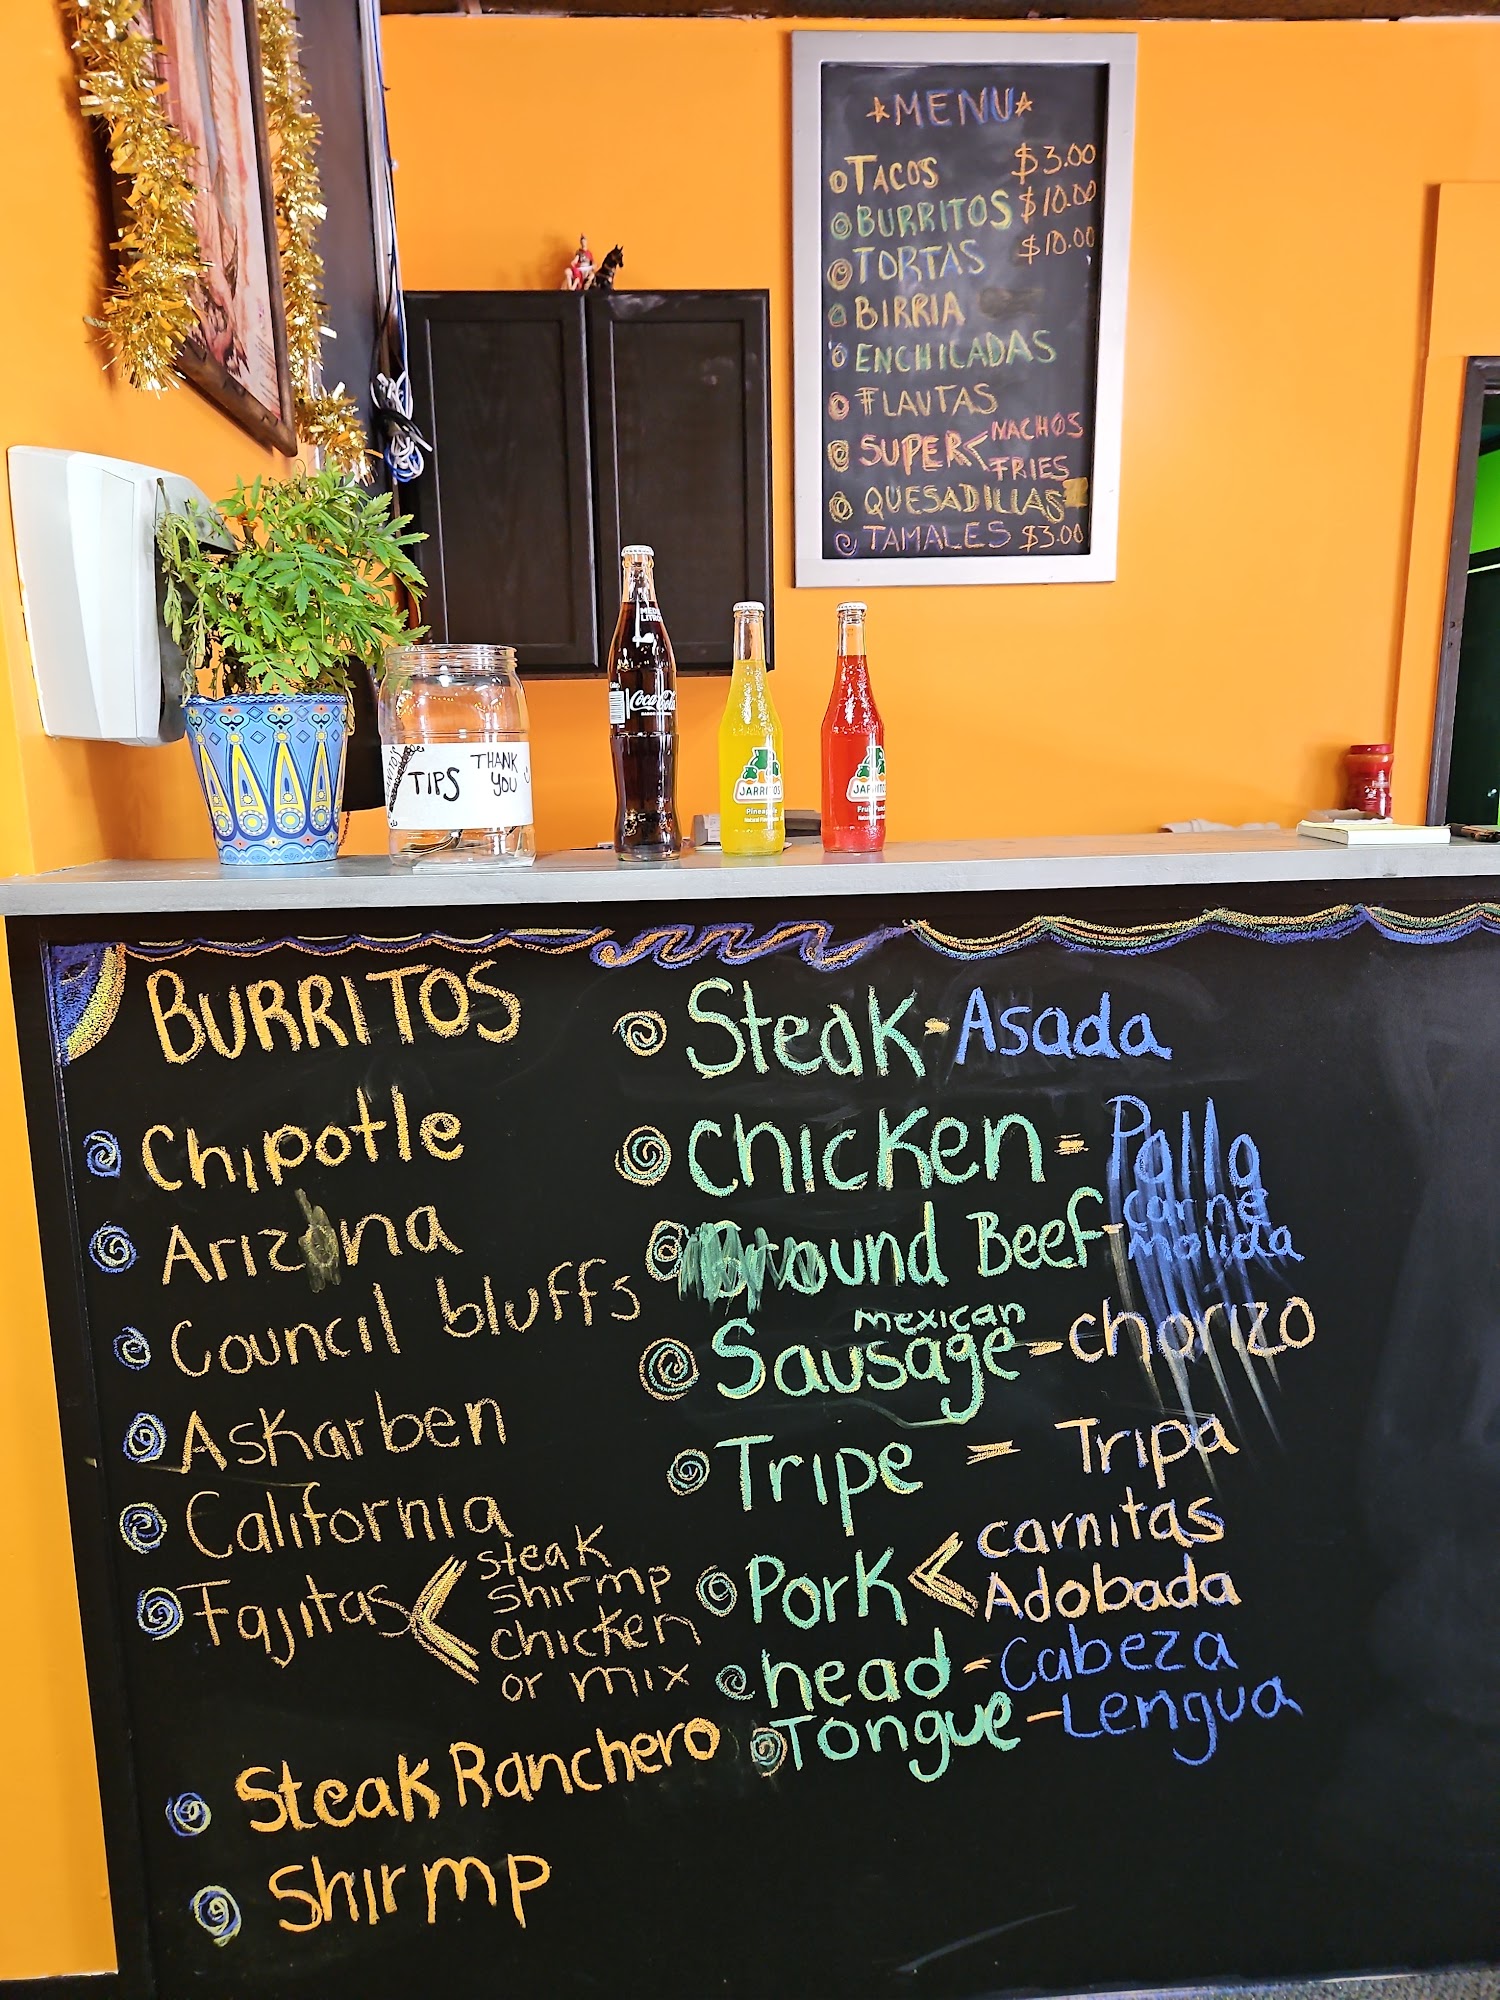 MENU
TACOS $3.00
BURRITOS $10.00
TORTAS $10.00
BIRRIA
ENCHILADAS
FLAUTAS
SUPER < NACHOS
FRIES
QUESADILLAS
TAMALES $3.00
TIPS
THANK
YOU
MEDIO
LITRO
Coca-Cola
JARRITOS
Pineapple
JARRITOS
Fruit Punch
BURRITOS
Chipotle
Arizona
Council bluffs
Askarben
California
Fajitas < steak
shirmp
chicken
or mix
Steak Ranchero
Shirmp
Steak - Asada
chicken = Pollo
Ground Beef - carne
molida
mexican
Sausage - chorizo
Tripe = Tripa
Pork < carnitas
Adobada
head - Cabeza
Tongue - Lengua